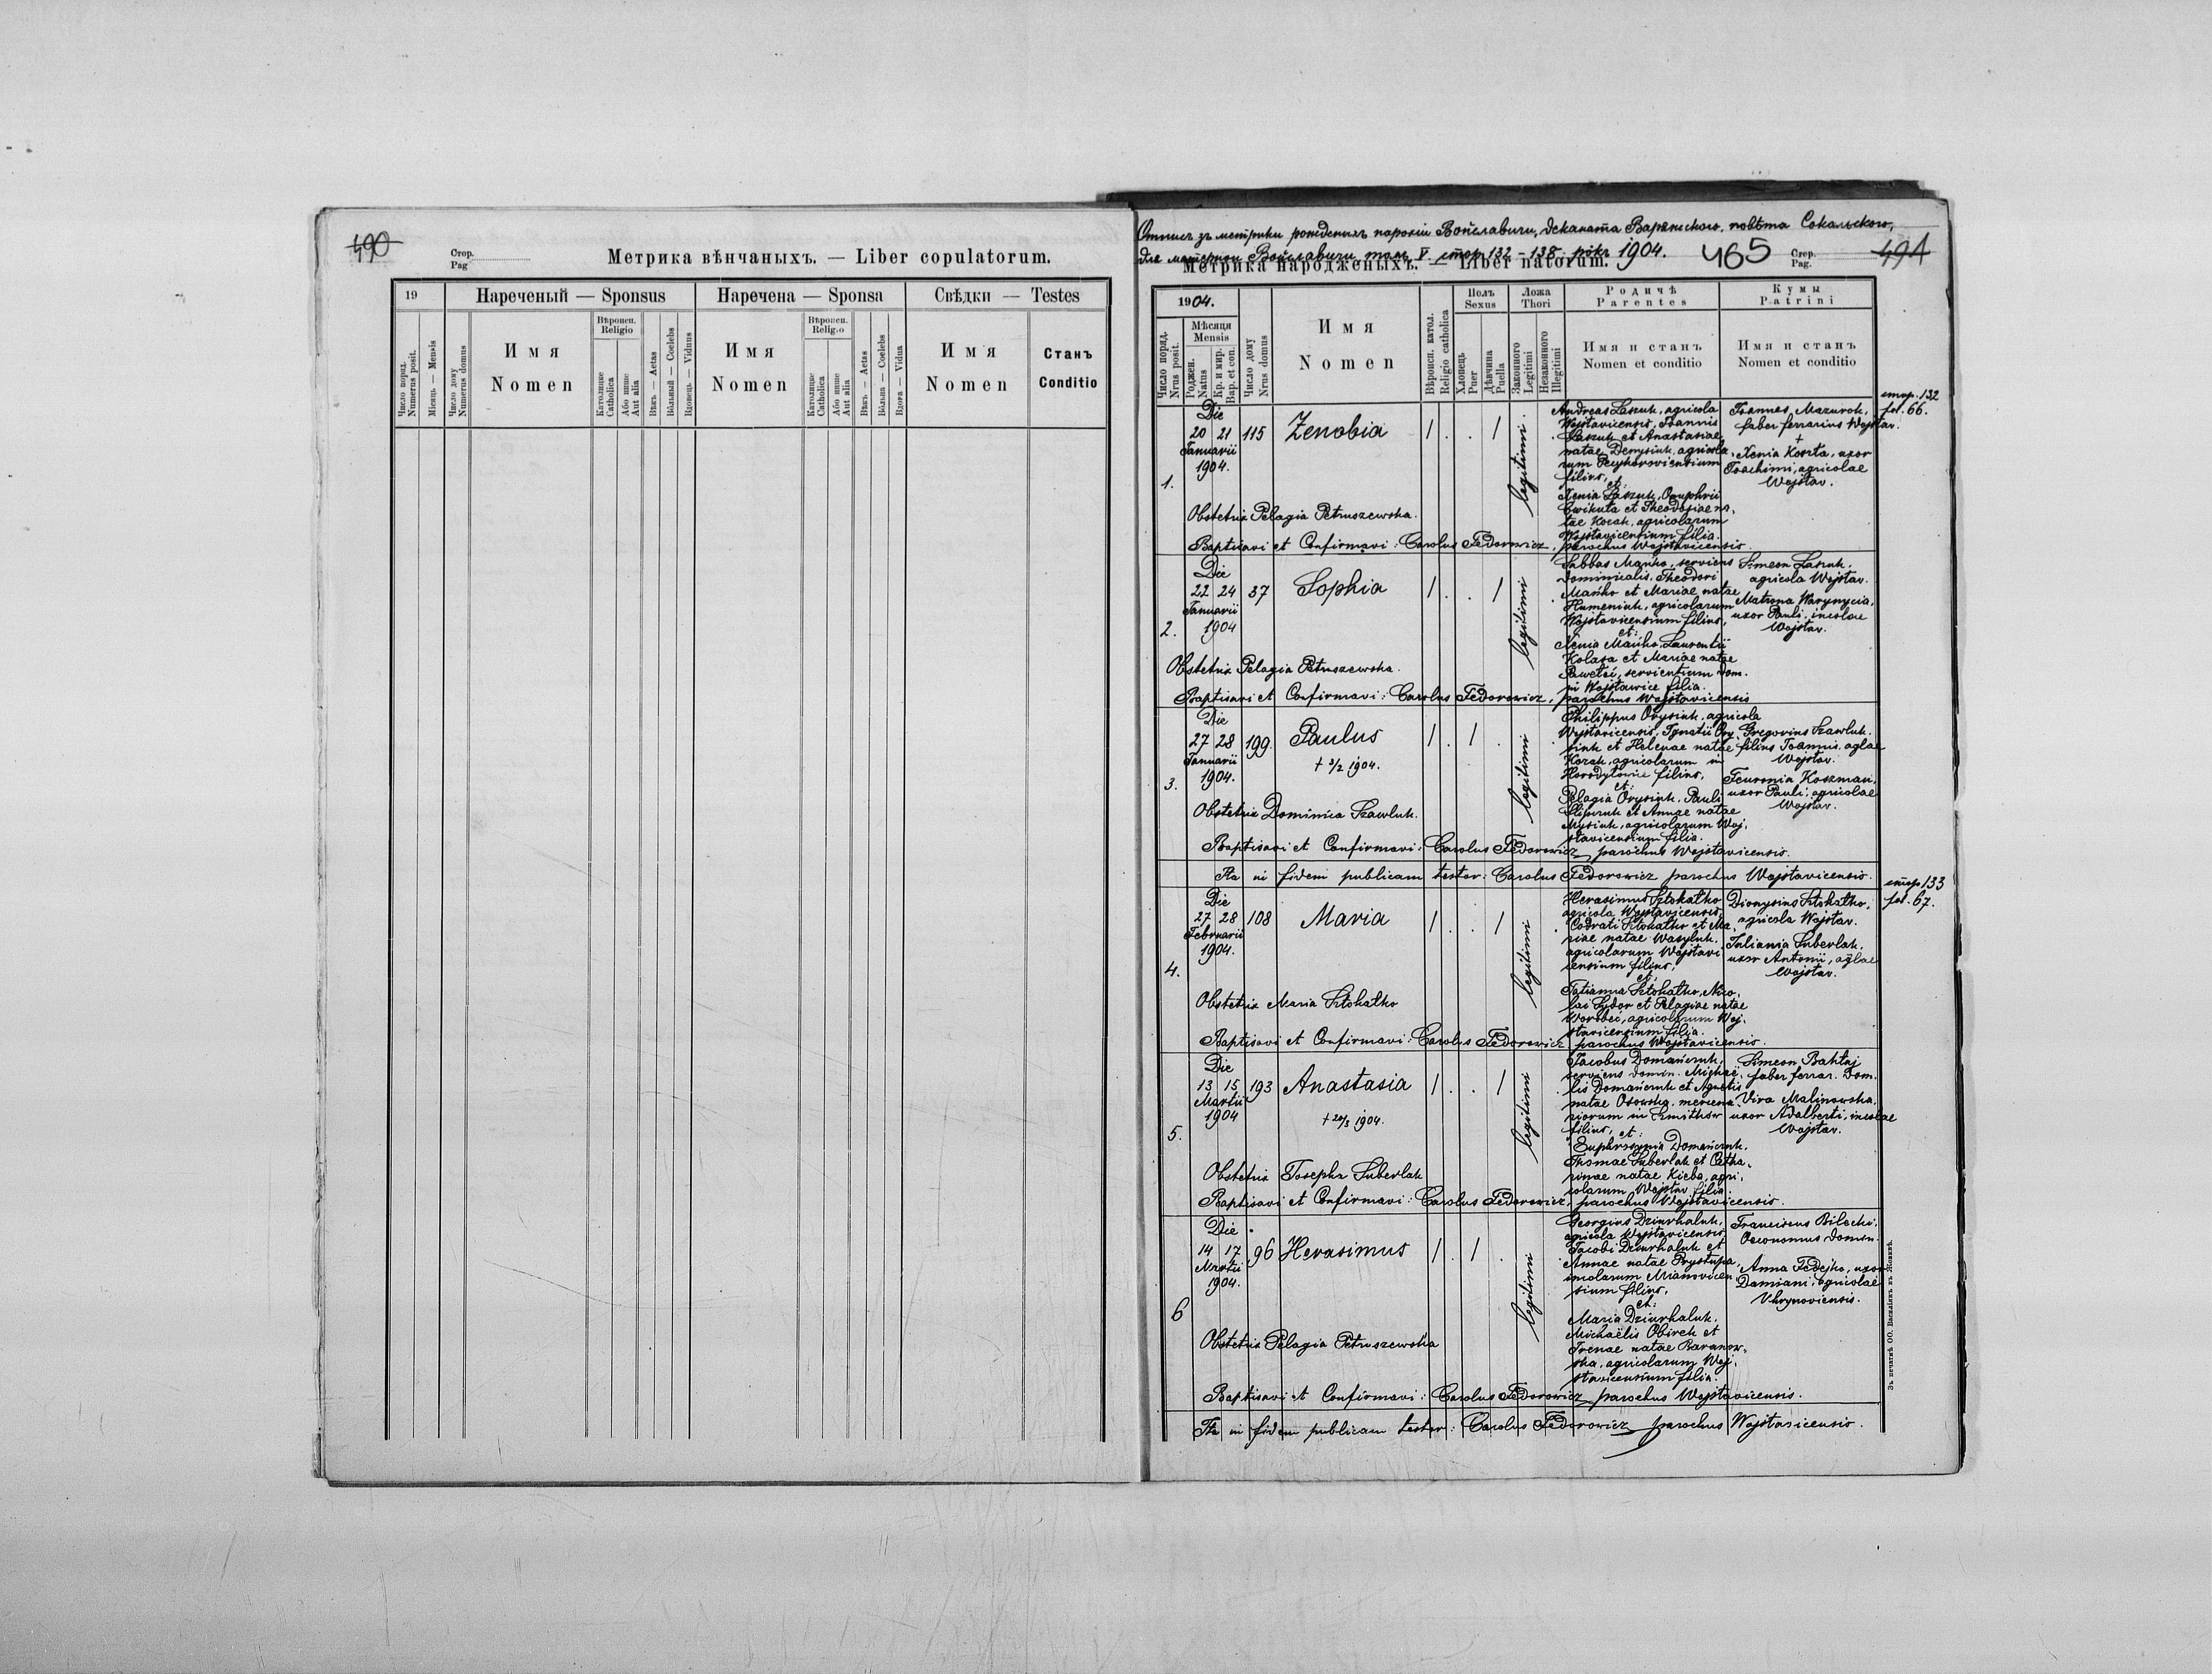 490
Стор.
Pag
Метрика вѣнчаныхъ. — Liber copulatorum.
19
Нареченый — Sponsus
Наречена — Sponsa
Свѣдки — Testes
Число поряд.
Numerus posit.
Місяць — Mensis
Число дому
Numerus domus
Имя
Nomen
Вѣроисп.
Religio
Католицке
Catholica
Або инше
Aut alia
Вѣкъ — Aetas
Вôльный — Coelebs
Вдовець — Viduus
Имя
Nomen
Вѣроисп.
Religio
Католицке
Catholica
Або инше
Aut alia
Вѣкъ — Aetas
Вôльна — Coelebs
Вдова — Vidua
Имя
Nomen
Станъ
Conditio
Отпись зъ метрики рожденихъ парохіи Войславичи, деканата Варяжского, повѣта Сокальского,
для матерной Войславичи томъ V. стор. 132 – 138 рôкъ 1904.
465
Метрика народженыхъ. — Liber natorum.
Стор.
Pag.
491
1904.
Число поряд.
Nrus posit.
Мѣсяця
Mensis
Роджен.
Natus
Кр. и мир.
Bap. et con.
Число дому
Nrus domus
Имя
Nomen
Вѣроисп. катол.
Religio catholica
Полъ
Sexus
Хлопець
Puer
Дѣвчина
Puella
Ложа
Thori
Законного
Legitimi
Незаконного
Illegitimi
Родичѣ
Parentes
Имя и станъ
Nomen et conditio
Кумы
Patrini
Имя и станъ
Nomen et conditio
стор. 132
fol. 66.
1.
Die
20 21
Januarii
1904.
115
Zenobia
1 . . 1
legitimi
Andreas Laszuk, agricola
Wojslavicensis, Joannis
Laszuk et Anastasiae
natae Denysiuk, agricola-
rum
filius,
et:
Xenia Laszuk, Onuphrii
Cwikuta et Theodosiae na-
tae Kozak, agricolarum
Wojslavicensium filia.
Joannes Mazurok,
faber ferrarius Wojslav.
+
Xenia Koszta, uxor
Joachimi, agricolae
Wojslav.
Obstetrix Pelagia Petruszewska.
Baptisavi et Confirmavi: Carolus Fedorowicz, parochus Wojslavicensis.
2.
Die
22 24
Januarii
1904
37
Sophia
1 . . 1
legitimi
Sabbas Mańko, serviens
dominicalis, Theodori
Mańko et Mariae natae
Humeniuk, agricolarum
Wojslavicensium filius,
et:
Xenia Mańko, Laurentii
Kolasa et Mariae natae
servientium dom.
in Wojsławice filia.
Simeon Laszuk,
agricola Wojslav.
Matrona Warynycia,
uxor Pauli, incolae
Wojslav.
Obstetrix Pelagia Petruszewska.
Baptisavi et Confirmavi: Carolus Fedorowicz, parochus Wojslavicensis
3.
Die
27 28
Januarii
1904.
199.
Paulus
+ 3/2 1904.
1 . 1 .
legitimi
Philippus Orysiuk, agricola
Wojslavicensis, Ignatii Ory-
siuk et Helenae natae
Kozak, agricolarum in
Horodyłowice filius,
et:
Pelagia Orysiuk, Pauli
Slipczuk et Annae natae
Mysiuk, agricolarum Woj-
slavicensium filia.
Gregorius Szawluk,
filius Joannis, aglae
Wojslav.
Fevronia Koszman,
uxor Pauli, agricolae
Wojslav.
Obstetrix Dominica Szawluk.
Baptisavi et Confirmavi: Carolus Fedorowicz parochus Wojslavicensis.
Ita in fidem publicam testor: Carolus Fedorowicz parochus Wojslavicensis.
стор 133
fol. 67.
4.
Die
27 28
Februarii
1904.
108
Maria
1 . . 1
legitimi
Herasimus Sztokałko
agricola Wojslavicensis,
Codrati Sztokałko et Ma-
riae natae Wasyluk,
agricolarum Wojslavi-
censium filius,
et,
Tatianna Sztokałko, Nico-
lai Sydor et Pelagiae natae
Worobeć, agricolarum Woj-
slavicensium filia.
Dionysius Sztokałko,
agricola Wojslav.
Juliania Suberlak,
uxor Antonii, aglae
Wojslav.
Obstetrix Maria Sztokałko
Baptisavi et Confirmavi: Carolus Fedorowicz parochus Wojslavicensis.
5.
Die
13 15
Martii
1904
193
Anastasia
1 . . 1
legitimi
Jacobus Domańczuk,
serviens domin. Michaë-
lis Domańczuk et Agnetis
natae Osowska, mercena-
riorum in Śmitków
filius, et:
Euphrosynia Domańczuk,
Thomae Suberlak et Catha-
rinae natae Kieba, agri-
colarum Wojslav. filia.
Simeon Bahtaj
faber ferrar. Dom.
Vira Malinowska,
uxor Adalberti, incolae
Wojslav.
Obstetrix Josepha Suberlak
Baptisavi et Confirmavi: Carolus Fedorowicz, parochus Wojslavicensis.
6
Die
14 17
Martii
1904.
96
Herasimus
1 . 1 .
legitimi
Georgius Dziurhaluk,
agricola Wojslavicensis,
Jacobi Dziurhaluk et
Annae natae Prystupa,
incolarum Mianovicen-
sium filius,
et:
Maria Dziurhaluk,
Michaëlis Obirek et
Irenae natae Baranow-
ska, agricolarum Woj-
slavicensium filia.
Franciscus Bilecki,
Oeconomus domin.
Anna Fedejko, uxor
Damiani, agricolae
Uhrynoviensis.
Obstetrix Pelagia Petruszewska
Baptisavi et Confirmavi: Carolus Fedorowicz parochus Wojslavicensis.
Ita in fidem publicam testor: Carolus Fedorowicz parochus Wojslavicensis.
Зъ печатнѣ ОО. Василіянъ въ Жовквѣ.